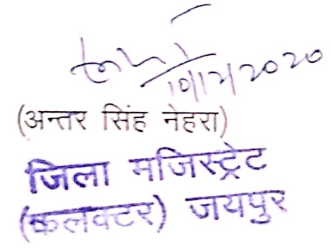 10/12/2020
(अन्तर सिंह नेहरा)
जिला मजिस्ट्रेट
(कलक्टर) जयपुर